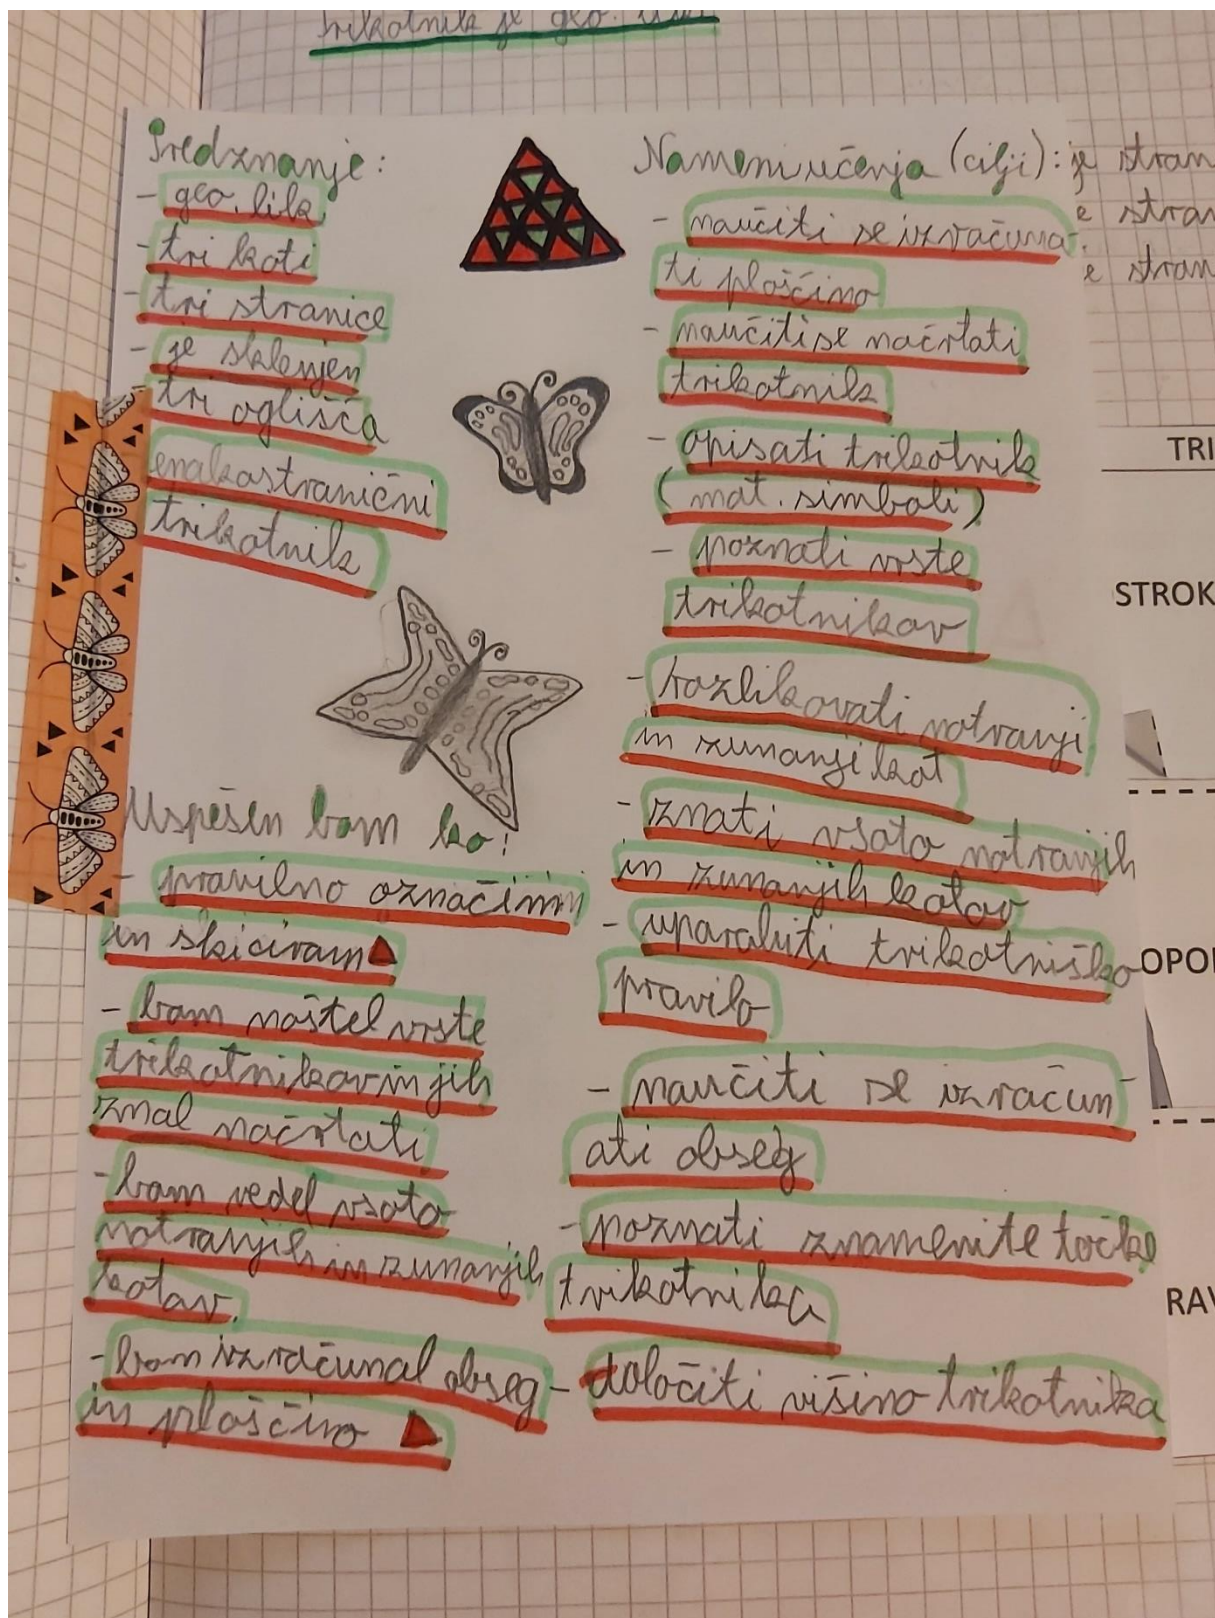 trikotnik je geo. lik
Predznanje:
- geo. lik
- tri koti
- tri stranice
- je sklenjen
tri oglišča
enakostranični
trikotnik
Uspešen bom ko:
- pravilno označim
in skiciram
- bom naštel vrste
trikotnikov in jih
znal načrtati
- bom vedel vsoto
notranjih in zunanjih
kotov.
- bom izračunal obseg
in ploščino
Nameni učenja (cilji):
- naučiti se izračuna-
ti ploščino
- naučiti se načrtati
trikotnik
- opisati trikotnik
(mat. simboli)
- poznati vrste
trikotnikov
- razlikovati notranji
in zunanji kot
- znati vsoto notranjih
in zunanjih kotov
- uporabiti trikotniško
pravilo
- naučiti se izračun-
ati obseg
- poznati znamenite točke
trikotnika
- določiti višino trikotnika
je stran
e stran
e stran
TRI
STROK
OPO
RAV